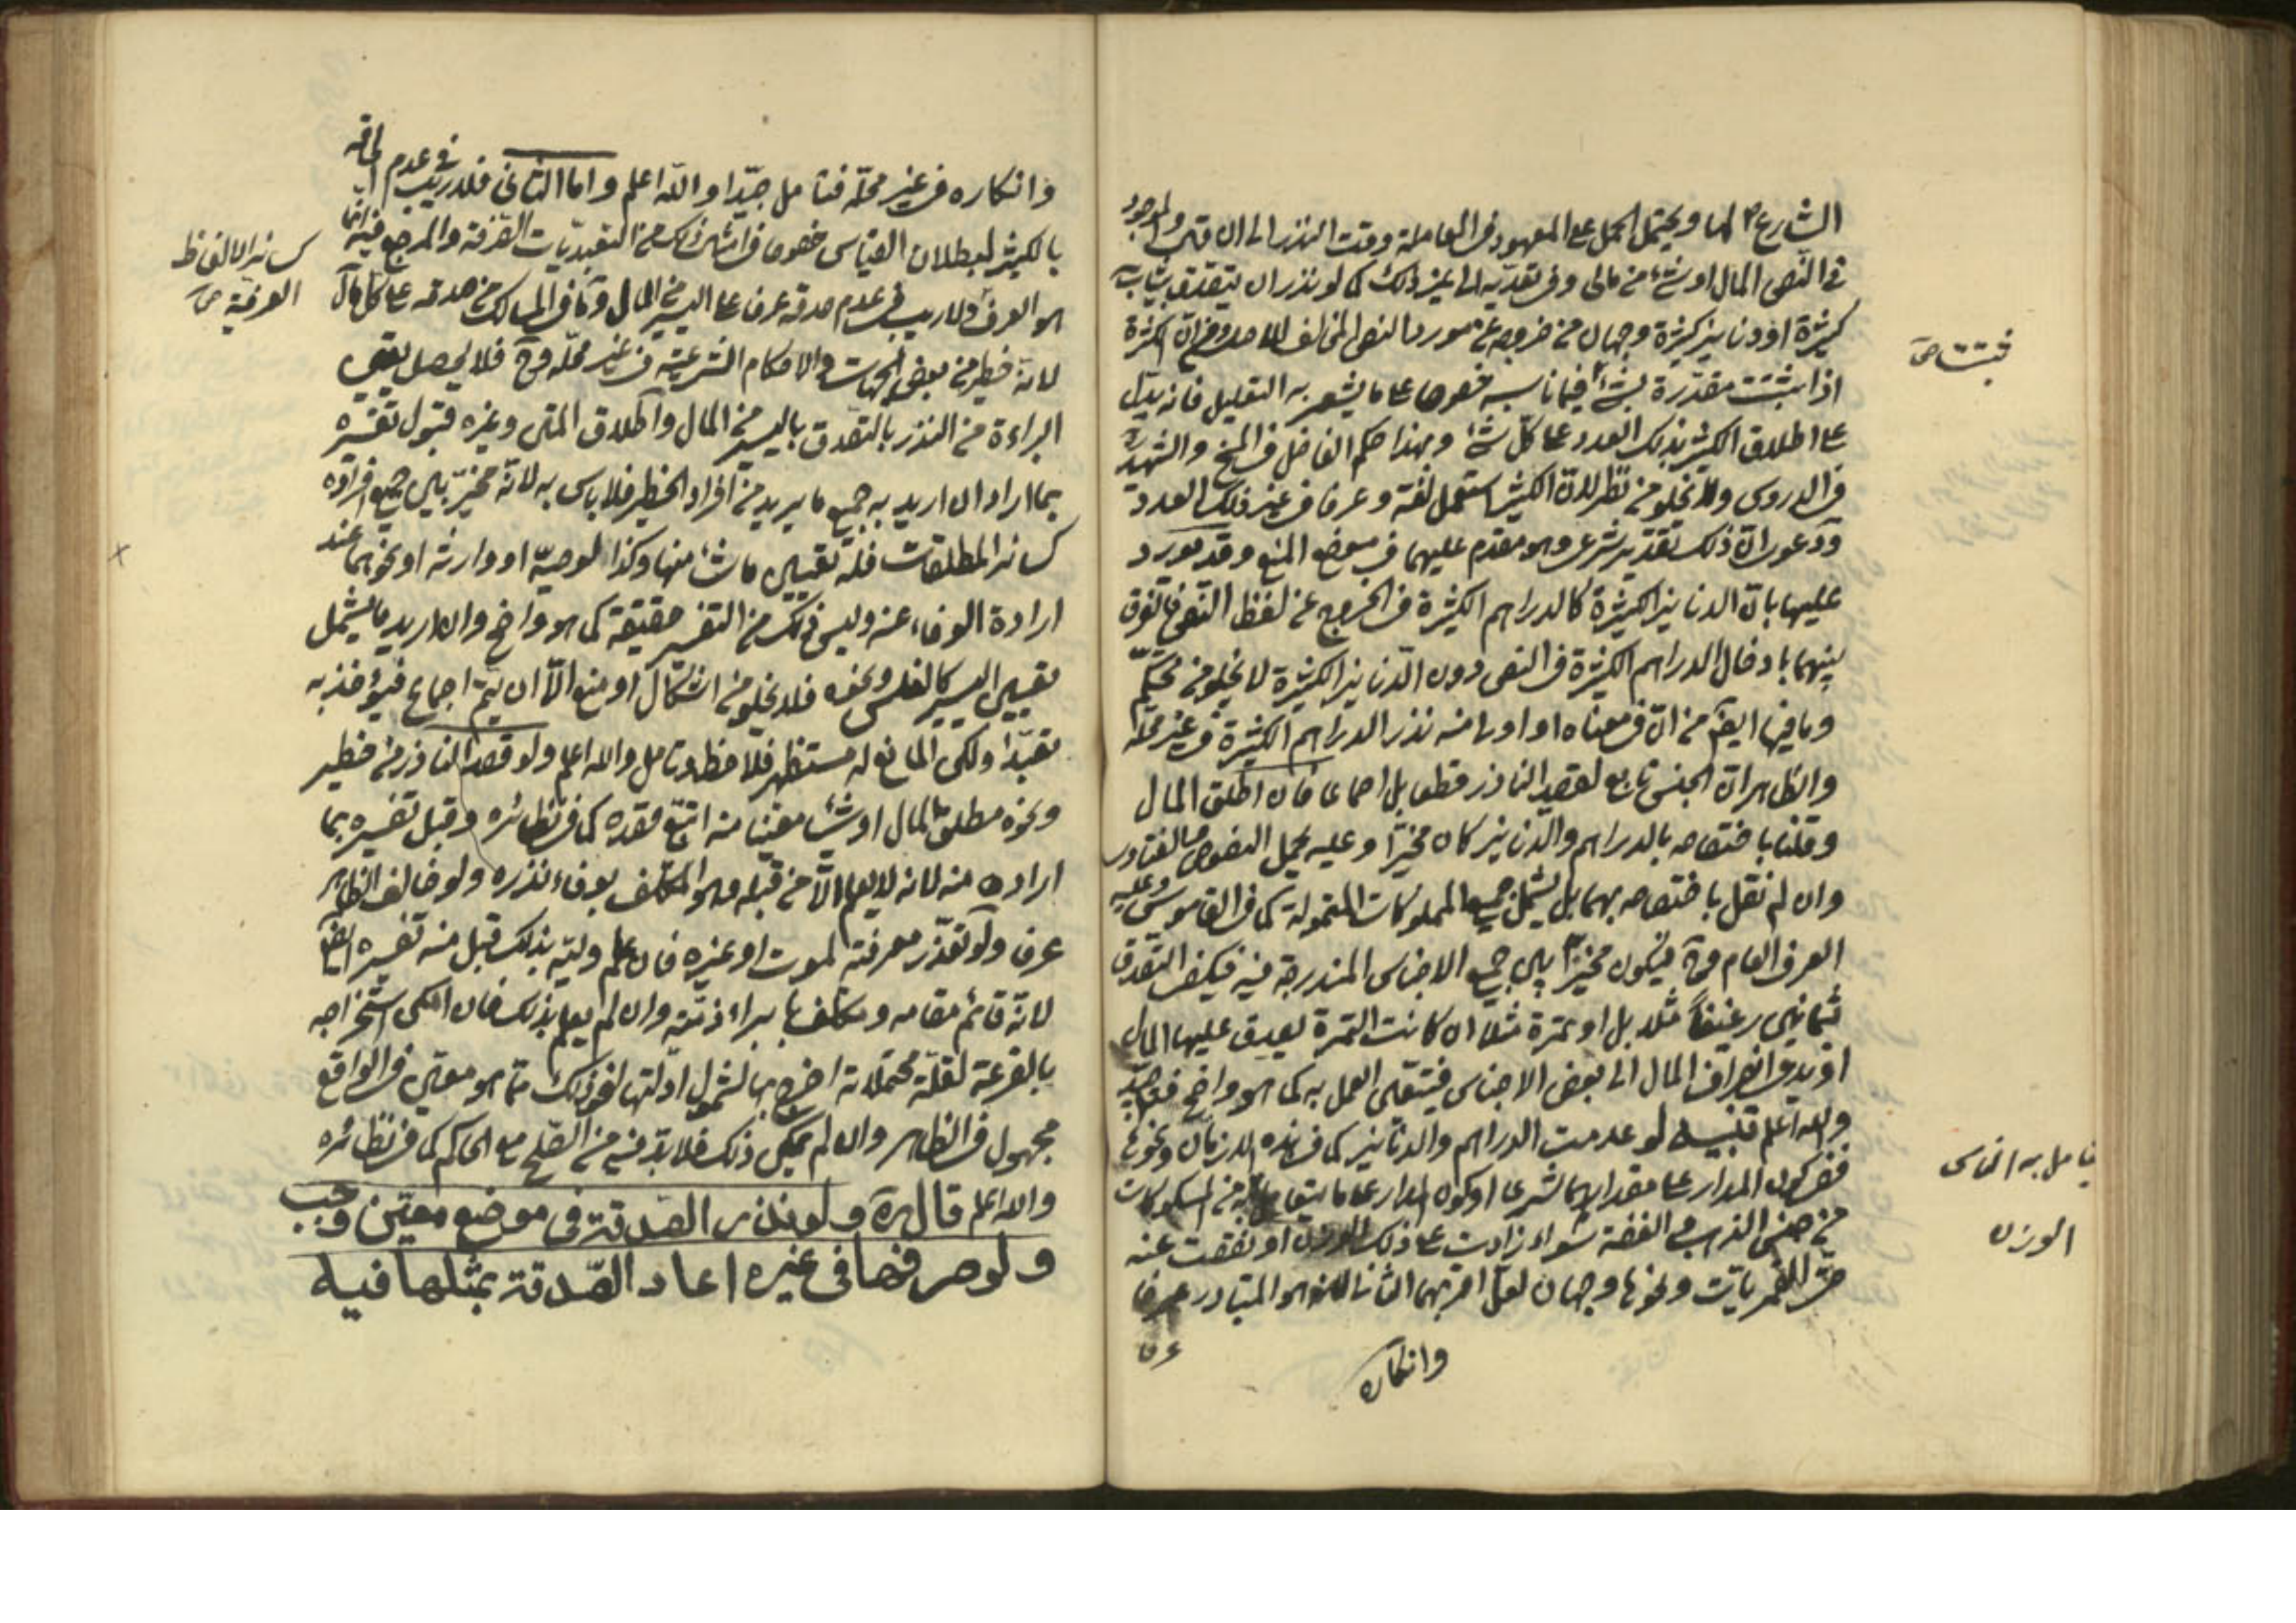 الشارع لها ويحتمل الحمل على المعهود في المعاملة وقت النذر الى الان والموجود
في النص المال او شئ من مالي وفي تعديه الى غير ذلك كما لو نذر ان يتصدق بثياب
كثيرة او دنانير كثيرة وجهان من خروجه عن مورد النص المخالف للاصل ومن ان الكثرة
اذا ثبتت مقدرة بشئ فيما ناسبه خصوصا على ما يشعر به التعليل فانه يدل
على اطلاق الكثير بذلك العدد على كل شئ وبهذا حكم الفاضل في المخ والشهيد
في الدروس ولا يخلو من نظر لان الكثير استعمل لغة وعرفا في غير ذلك العدد
ودعوى ان ذلك تقدير شرعي وهو مقدم عليهما في موضع المنع وقد يورد
عليها بان الدنانير الكثيرة كالدراهم الكثيرة في الخروج عن لفظ النص فالفرق
بينهما بادخال الدراهم الكثيرة في النص دون الدنانير الكثيرة لا يخلو من تحكم
وما فيها ايضا من ان في معناه او اولى منه نذر الدراهم الكثيرة في غير محله
والظاهر ان الجنس تابع لقصد الناذر قطعا بل اجماعا فان اطلق المال
وقلنا باختصاصه بالدراهم والدنانير كان مخيرا وعليه يحمل النصوص والفتاوى
وان لم نقل باختصاصه بهما بل يشمل جميع المملوكات المتمولة كما في القاموس وعليه
العرف العام فيكون مخيرا بين جميع الاجناس المندرجة فيه فيكفي التصدق
ثمانين رغيفا مثلا بل او تمرة مثلا ان كانت التمرة يصدق عليها المال
او يدعى انصراف المال الى بعض الاجناس فيتعين العمل به كما هو واضح
والله اعلم تنبيه لو عدمت الدراهم والدنانير كما في هذه الازمان ونحوها
ففي كون المدار على مقدارهما شرعا او كون المدار على ما يتعامل به من المسكوكات
من جنس الذهب والفضة سواء زادت على ذلك الوزن او نقصت عنه
حتى القمريات ونحوها وجهان لعل اقربهما الثاني لانه هو المتبادر عرفا
وانكاره
ثبتت
يتعامل به الناس
الوزن
وانكاره في غير محله فتامل جيدا والله اعلم واما الثاني فلا ريب في عدم الحاقه
بالكثير لبطلان القياس خصوصا في امثال ذلك من التعبديات الصرفة والمرجع فيه انما
هو العرف ولا ريب في عدم صدقه عرفا على اليسير من المال وما في المسالك من صدقه على كل مال
لانه خطير من بعض الجهات والاحكام الشرعية في غير محله فلا يحصل يقين
البراءة من النذر بالتصدق باليسير من المال واطلاق المتن وغيره قبول تفسيره
بما اراد ان اريد به جميع ما يريد من افراد الخطير فلا باس به لانه مخير بين جميع افراده
كسائر المطلقات فله تعيين ما شاء منها وكذا لوصيه او وارثه او نحوهما عند
ارادة الوفاء عنه وليس ذلك من التفسير حقيقة كما هو واضح وان اريد ما يشمل
تعيين اليسير كالفلس ونحوه فلا يخلو من اشكال او منع الا ان يتم اجماع فيؤخذ به
تعبدا ولكن المانع له مستظهر فلاحظ وتامل والله اعلم ولو قصد الناذر من خطير
ونحوه مطلق المال او شيئا معينا منه اتبع قصده كما في نظائره وقبل تفسيره بما
اراده منه لانه لا يعلم الا من قبله وهو المكلف بوفاء نذره ولو خالف الظاهر
عرفا ولو تعذر معرفته لموت او غيره فان علم وليه بذلك قبل منه تفسيره ايضا
لانه قائم مقامه ومكلف بابراء ذمته وان لم يعلم بذلك فان امكن استخراجه
بالقرعة لقلة محتملاته اخرج بها لشمول ادلتها لنحو ذلك مما هو معين في الواقع
مجهول في الظاهر وان لم يمكن ذلك فلا بد فيه من الصلح مع الحاكم كما في نظائره
والله اعلم قال ره ولو نذر الصدقة في موضع معين وجب
ولو صرفها في غيره اعاد الصدقة بمثلها فيه
كسائر الالفاظ
العرفية